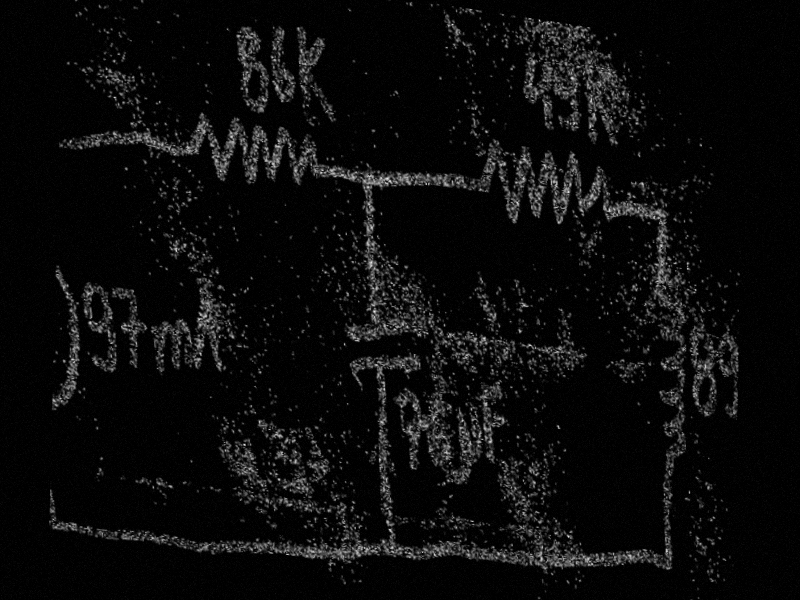 86K
49K
97mA
96µF
89